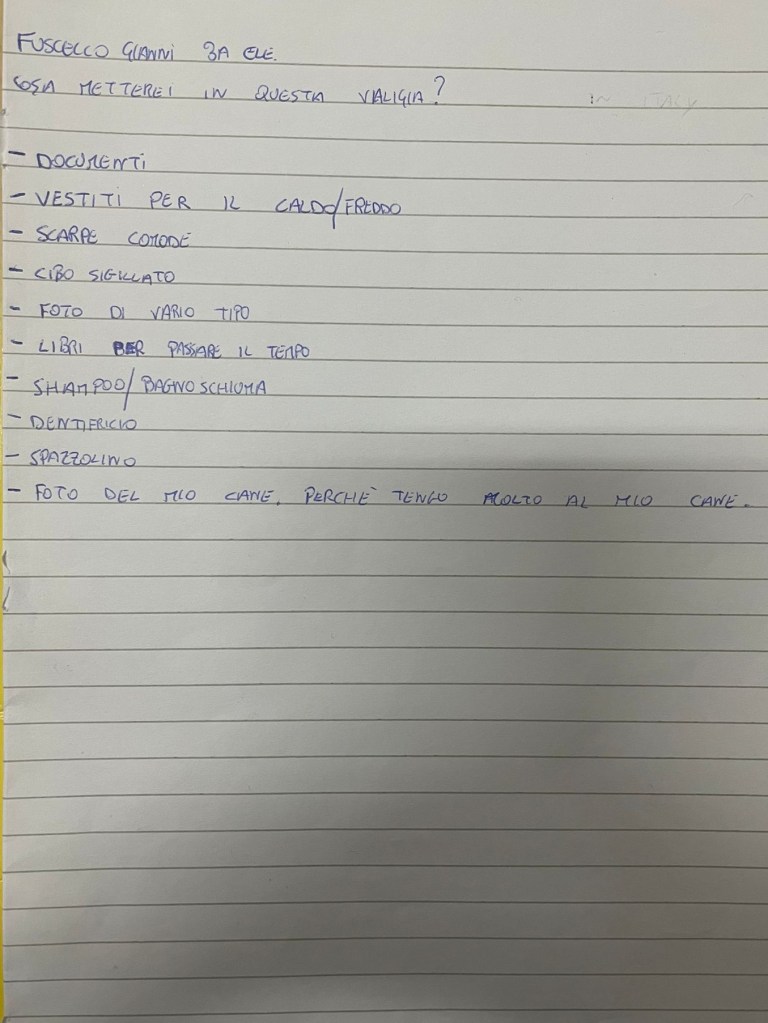 FUSCELLO GIANNI 3A ELE.
COSA METTEREI IN QUESTA VALIGIA?
IN ITALY
- DOCUMENTI
- VESTITI PER IL CALDO/FREDDO
- SCARPE COMODE
- CIBO SIGILLATO
- FOTO DI VARIO TIPO
- LIBRI PER PASSARE IL TEMPO
- SHAMPOO/BAGNOSCHIUMA
- DENTIFRICIO
- SPAZZOLINO
- FOTO DEL MIO CANE, PERCHÈ TENGO MOLTO AL MIO CANE.